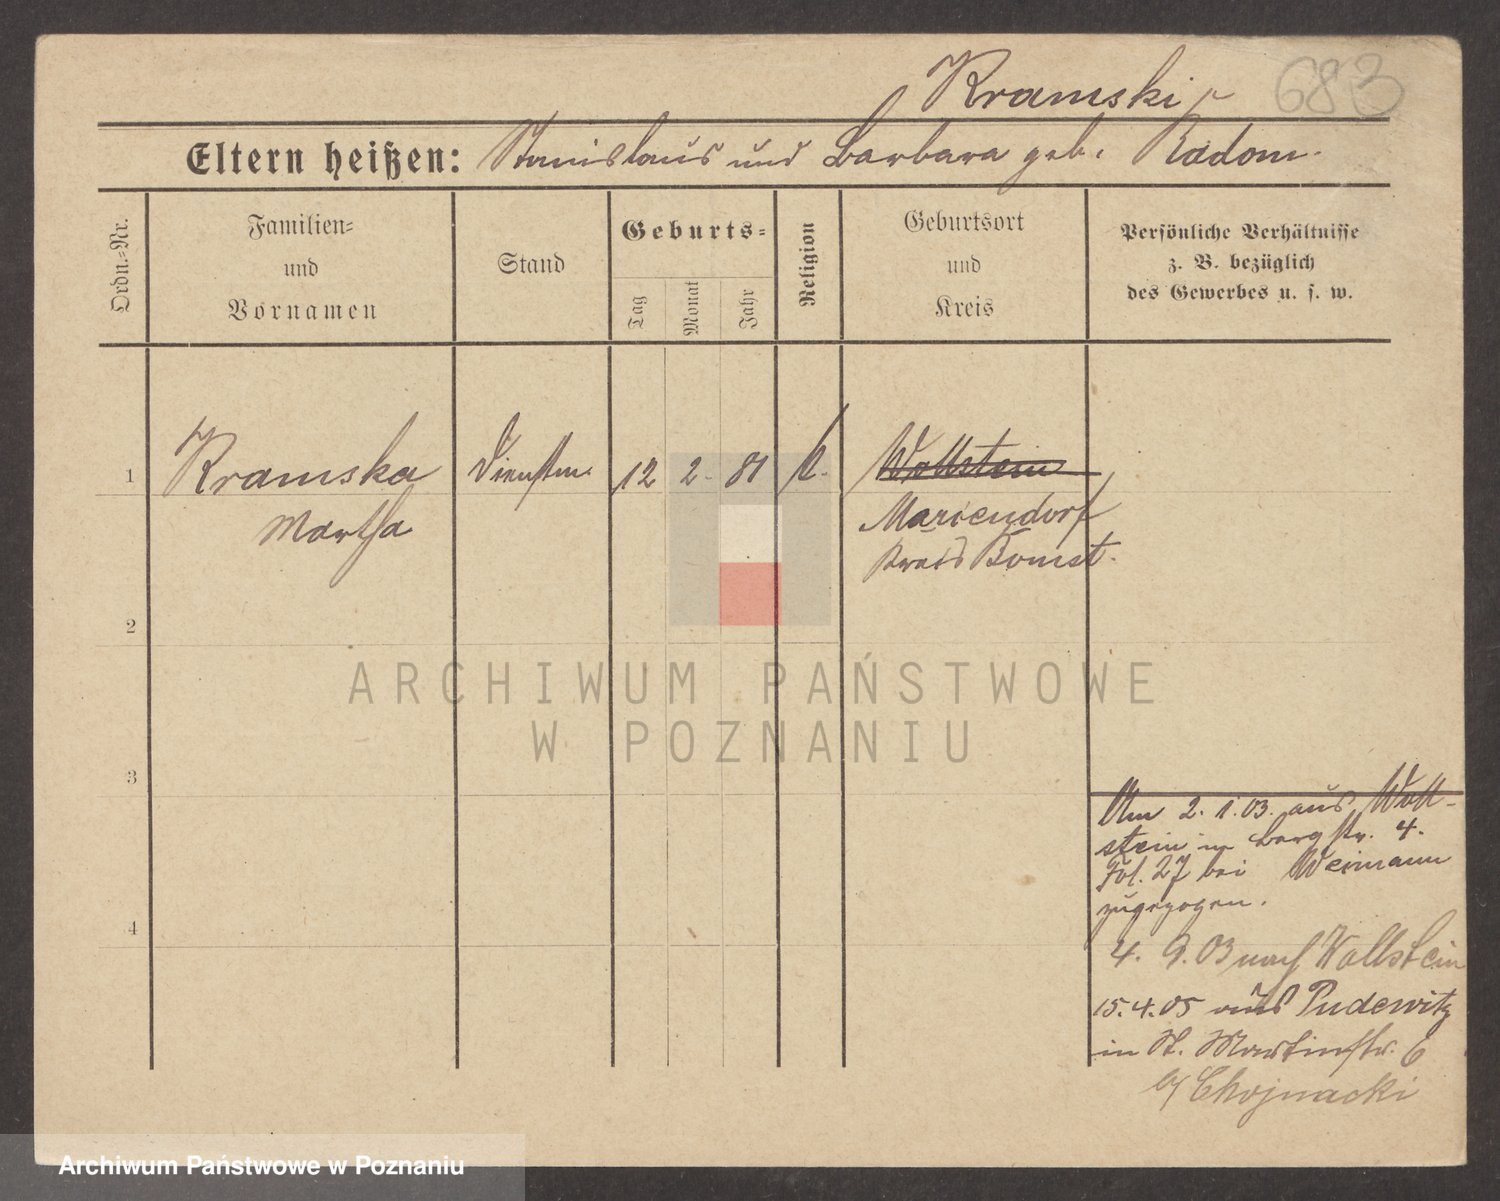 Kramski
683
Eltern heißen: Stanislaus und Barbara geb. Radom.
Ordn.-Nr.
Familien-
und
Vornamen
Stand
Geburts-
Tag
Monat
Jahr
Religion
Geburtsort
und
Kreis
Persönliche Verhältnisse
z. B. bezüglich
des Gewerbes u. s. w.
1 Kramska Dienstm. 12 2. 81 k. Wollstein
Martha
Mariendorf
Kreis Bomst.
2
3
4
Am 2. 1. 03. aus Woll-
stein in Bergstr. 4.
Fol. 27 bei Weimann
zugezogen.
4. 9. 03 nach Wollstein
15. 4. 05 aus Pudewitz
in St. Martinstr. 6
b/ Chojnacki
ARCHIWUM PAŃSTWOWE
W POZNANIU
Archiwum Państwowe w Poznaniu